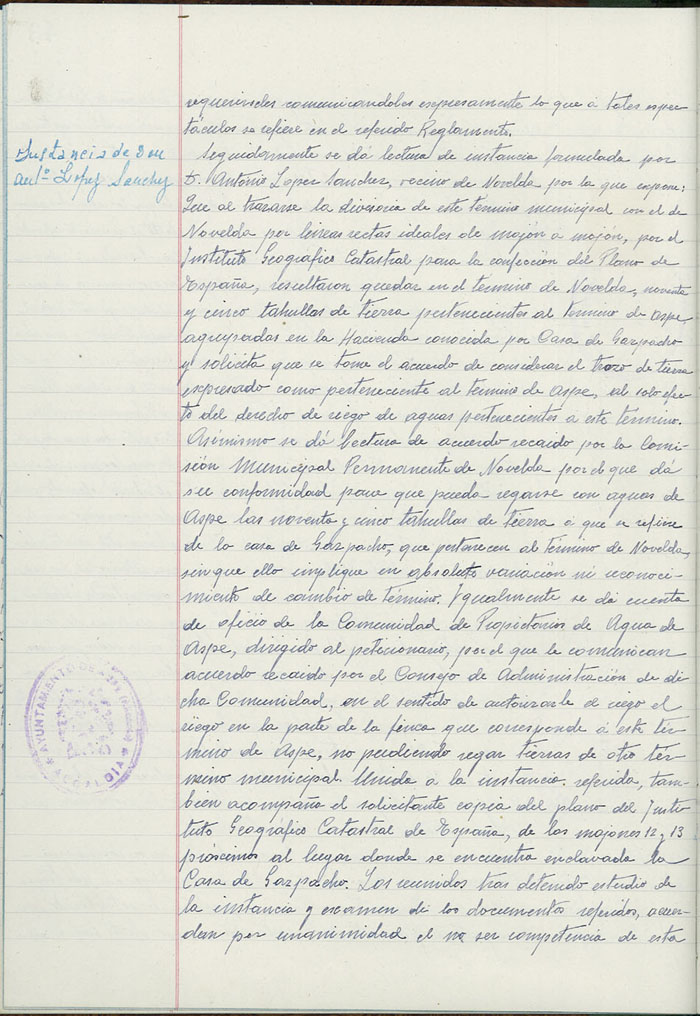 Instancia de Don
Antº Lopez Sanchez
requeriendoles comunicandoles expresamente lo que á tales espec-
táculos se refiere en el referido Reglamento.
Seguidamente se dá lectura de instancia formulada por
D. Antonio Lopez Sanchez, vecino de Novelda por la que expone:
Que al trazarse la divisoria de este termino municipal con el de
Novelda por lineas rectas ideales de mojón a mojón, por el
Instituto Geográfico Catastral para la confección del Plano de
España, resultaron quedar en el término de Novelda, noventa
y cinco tahullas de tierra pertenecientes al termino de Aspe,
agrupadas en la Hacienda conocida por Casa de Gazpacho
y solicita que se tome el acuerdo de considerar el trozo de tierra
expresado como perteneciente al termino de Aspe, al solo efec-
to del derecho de riego de aguas pertenecientes a este término.
Asimismo se dá lectura de acuerdo recaido por la Comi-
sión Municipal Permanente de Novelda por el que dá
su conformidad para que pueda regarse con aguas de
Aspe las noventa y cinco tahullas de tierra á que se refiere
de la casa de Gazpacho, que pertenecen al término de Novelda,
sin que ello implique en absoluto variación ni reconoci-
miento de cambio de término. Igualmente se dá cuenta
de oficio de la Comunidad de Propietarios de Agua de
Aspe, dirigido al peticionario, por el que le comunican
acuerdo recaido por el Consejo de Administración de di-
cha Comunidad, en el sentido de autorizarle el riego el
riego en la parte de la finca que corresponde á este tér-
mino de Aspe, no pudiendo regar tierras de otro tér-
mino municipal. Unida a la instancia referida, tam-
bien acompaña el solicitante copia del plano del Insti-
tuto Geográfico Catastral de España, de los mojones 12 y 13
próximos al lugar donde se encuentra enclavada la
Casa de Gazpacho. Los reunidos tras detenido estudio de
la instancia y examen de los documentos referidos, acuer-
dan por unanimidad el no ser competencia de esta
AYUNTAMIENTO DE ASPE
ALCALDIA